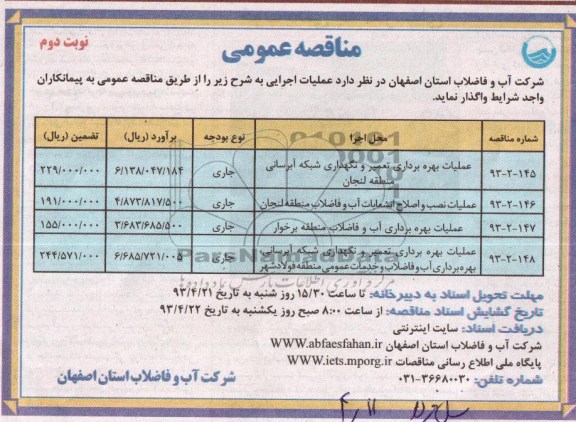 مناقصه عمومی
نوبت دوم
شرکت آب و فاضلاب استان اصفهان در نظر دارد عملیات اجرایی به شرح زیر را از طریق مناقصه عمومی به پیمانکاران
واجد شرایط واگذار نماید.
شماره مناقصه محل اجرا نوع بودجه برآورد (ریال) تضمین (ریال)
۹۳-۲-۱۴۵ عملیات بهره برداری تعمیر و نگهداری شبکه آبرسانی منطقه لنجان جاری ۶/۱۳۸/۰۴۷/۱۸۴ ۲۲۹/۰۰۰/۰۰۰
۹۳-۲-۱۴۶ عملیات نصب و اصلاح انشعابات آب و فاضلاب منطقه لنجان جاری ۴/۸۷۳/۸۱۷/۵۰۰ ۱۹۱/۰۰۰/۰۰۰
۹۳-۲-۱۴۷ عملیات بهره برداری آب و فاضلاب منطقه برخوار جاری ۳/۶۸۳/۶۸۵/۵۰۰ ۱۵۵/۰۰۰/۰۰۰
۹۳-۲-۱۴۸ عملیات بهره برداری تعمیر و نگهداری شبکه آبرسانی بهره‌برداری آب و فاضلاب و خدمات عمومی منطقه فولادشهر جاری ۶/۶۸۵/۷۲۱/۰۰۵ ۲۴۴/۵۷۱/۰۰۰
ParsNamadData
مرکز فرآوری اطلاعات پارس نماد داده‌ها
مهلت تحویل اسناد به دبیرخانه: تا ساعت ۱۵/۳۰ روز شنبه به تاریخ ۹۳/۴/۲۱
تاریخ گشایش اسناد مناقصه: از ساعت ۸:۰۰ صبح روز یکشنبه به تاریخ ۹۳/۴/۲۲
دریافت اسناد: سایت اینترنتی
شرکت آب و فاضلاب استان اصفهان WWW.abfaesfahan.ir
پایگاه ملی اطلاع رسانی مناقصات WWW.iets.mporg.ir
شماره تلفن: ۳۶۶۸۰۰۳۰-۰۳۱
شرکت آب و فاضلاب استان اصفهان